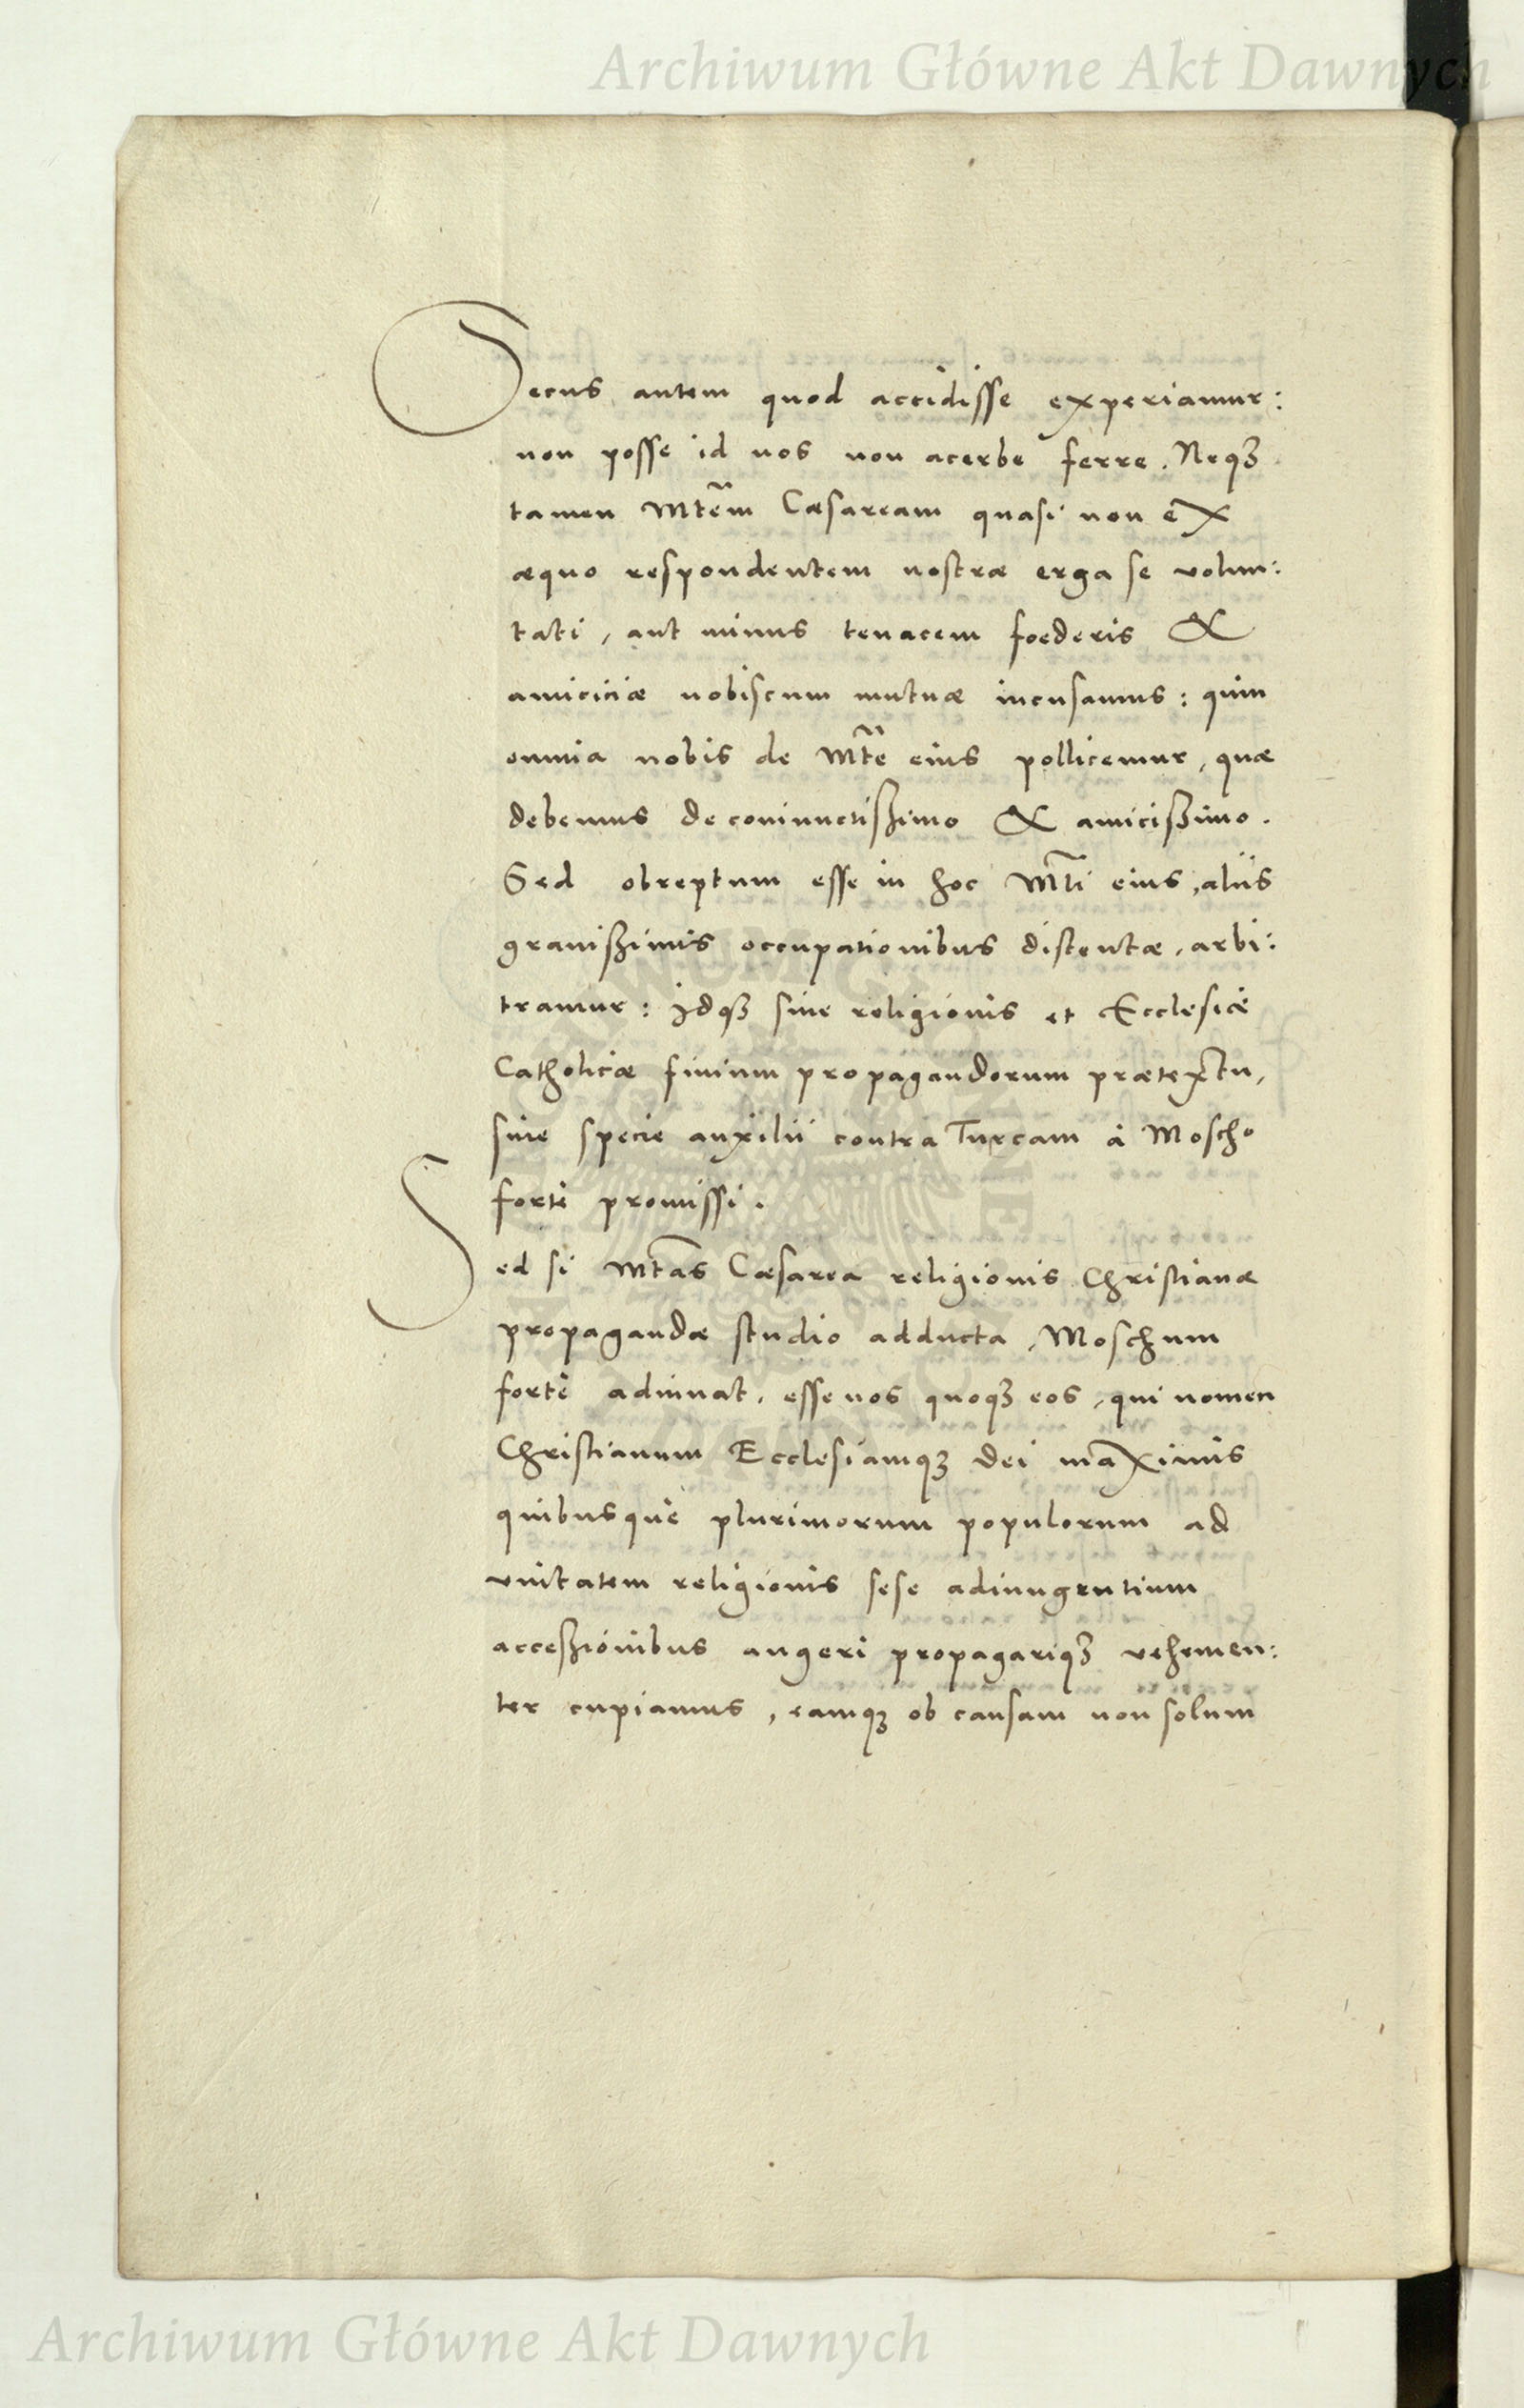 Archiwum Główne Akt Dawnych
Secus autem quod accidisse experiamur:
non posse id nos non acerbe ferre. Neqȝ
tamen Mtem̃ Caesaream quasi non ex
aequo respondentem nostrae erga se volun:
tati, aut minus tenacem foederis &
amiciciae nobiscum mutuae incusamus: quin
omnia nobis de Mte͂ eius pollicemur, quae
debemus de coniunctißimo & amicißimo.
Sed obreptum esse in hoc Mti͂ eius, aliis
grauißimis occupationibus distentae, arbi:
tramur: Idqȝ siue religionis et Ecclesiae
Catholicae finium propagandorum praetextu,
siue specie auxilii contra Turcam à Moscho
fortè promissi.
Sed si Mtas͂ Caesarea religionis Christianae
propagandae studio adducta, Moschum
fortè adiuuat, esse nos quoqȝ eos, qui nomen
Christianum Ecclesiamqȝ Dei maximis
quibusquè plurimorum populorum ad
vnitatem religionis sese adiungentium
acceßionibus augeri propagariqȝ vehemen:
ter cupiamus, eamqȝ ob causam non solum
Archiwum Główne Akt Dawnych